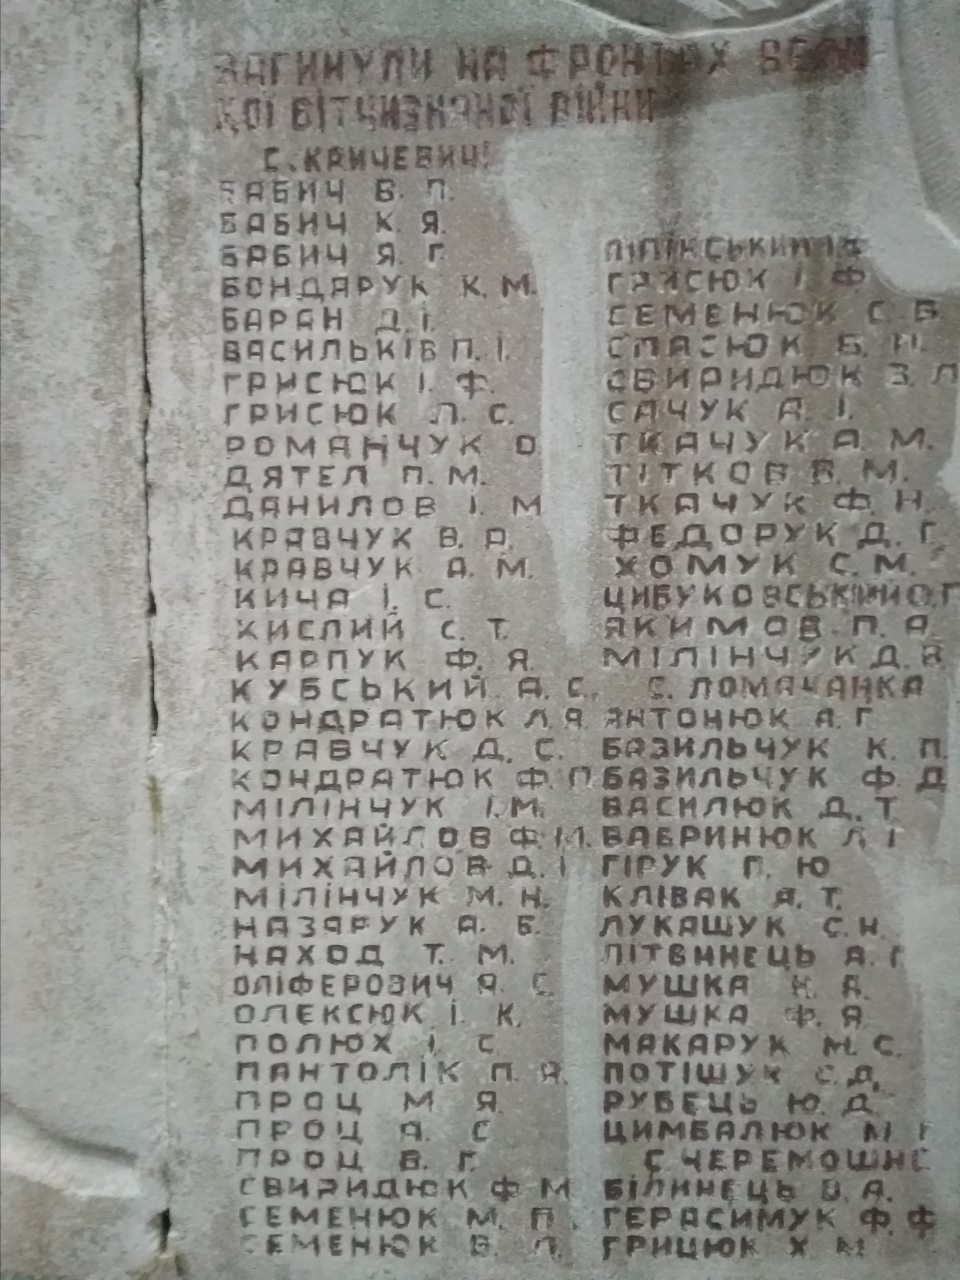 ЗАГИНУЛИ НА ФРОНТАХ ВЕЛИ
КОЇ ВІТЧИЗНЯНОЇ ВІЙНИ
С. КРИЧЕВИЧІ
БАБИЧ В. П.
БАБИЧ К. Я.
БАБИЧ Я. Г.
БОНДАРУК К. М.
БАРАН Д. І.
ВАСИЛЬКІВ П. І.
ГРИСЮК І. Ф.
ГРИСЮК Л. С.
РОМАНЧУК О
ДЯТЕЛ П. М.
ДАНИЛОВ І. М
КРАВЧУК В. А.
КРАВЧУК А. М.
КИЧА І. С.
КИСЛИЙ С. Т.
КАРПУК Ф. Я.
КУБСЬКИЙ А. С.
КОНДРАТЮК Л. А
КРАВЧУК Д. С.
КОНДРАТЮК Ф. П
МІЛІНЧУК І. М.
МИХАЙЛОВ Ф. М.
МИХАЙЛОВ Д. І
МІЛІНЧУК М. Н.
НАЗАРУК А. Б.
НАХОД Т. М.
ОЛІФЕРОВИЧ Я. С.
ОЛЕКСЮК І. К.
ПОЛЮХ І С
ПАНТОЛІК П. Я.
ПРОЦ М Я.
ПРОЦ А. С
ПРОЦ В. Г.
СВИРИДЮК Ф М
СЕМЕНЮК М. П.
СЕМЕНЮК В. Л.
ГРИСЮК І Ф
СЕМЕНЮК С. В
СПАСЮК Б.
СВИРИДЮК З. Л
САЧУК А. І.
ТКАЧУК А. М.
ТІТКОВ В. М.
ТКАЧУК Ф. Н.
ФЕДОРУК Д. Г.
ХОМУК С. М.
ЦИБУКОВСЬКИЙ О. Г
ЯКИМОВ П. А.
МІЛІНЧУК Д. В
С. ЛОМАЧАНКА
АНТОНЮК А. Г
БАЗИЛЬЧУК К. П.
БАЗИЛЬЧУК Ф. Д
ВАСИЛЮК Д. Т
ВАВРИНЮК Л І
ГІРУК П. Ю
КЛІВАК А. Т.
ЛУКАЩУК С. Н.
ЛІТВИНЕЦЬ А. Г
МУШКА А.
МУШКА Ф. Я
МАКАРУК М. С.
ПОТІШУК С. Д.
РУБЕЦЬ Ю. Д.
ЦИМБАЛЮК М
С. ЧЕРЕМОШНЕ
БІЛИНЕЦЬ В. А.
ГЕРАСИМУК Ф. Ф
ГРИЦЮК Х М